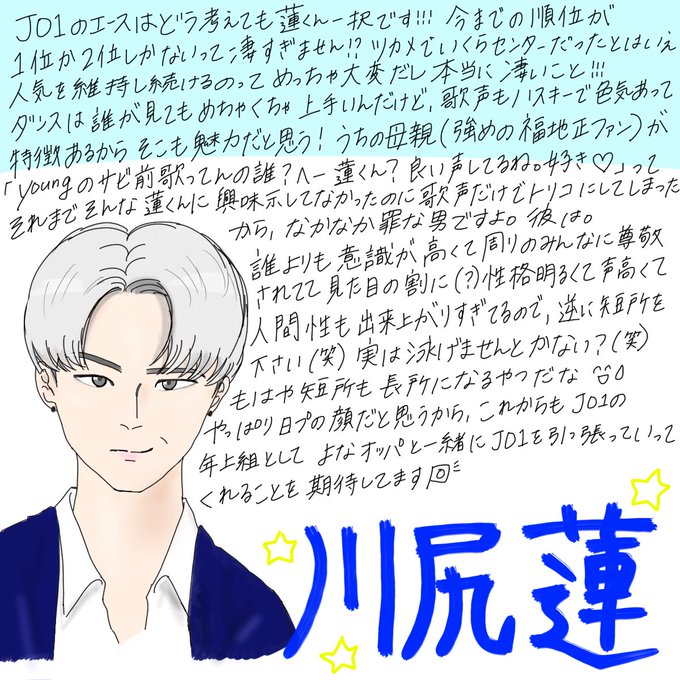 JO1のエースはどう考えても蓮くん一択です!!! 今までの順位が
1位か2位しかないって凄すぎません!? ツカメでいくらセンターだったとはいえ
人気を維持し続けるのってめっちゃ大変だし本当に凄いこと!!!
ダンスは誰が見てもめちゃくちゃ上手いんだけど、歌声もハスキーで色気あって
特徴あるからそこも魅力だと思う! うちの母親(強めの福地正ファン)が
「youngのサビ前歌ってんの誰?へー蓮くん?良い声してるね。好き♡」って
それまでそんな蓮くんに興味示してなかったのに歌声だけでトリコにしてしまった
から、なかなか罪な男ですよ。彼は。
誰よりも意識が高くて周りのみんなに尊敬
されてて見た目の割に(?)性格明るくて声高くて
人間性も出来上がりすぎてるので、逆に短所を
下さい(笑) 実は泳げませんとかない?(笑)
もはや短所も長所になるやつだな
やっぱり日プの顔だと思うから、これからもJO1の
年上組として よなオッパと一緒にJO1を引っ張っていって
くれることを期待してます
川尻蓮